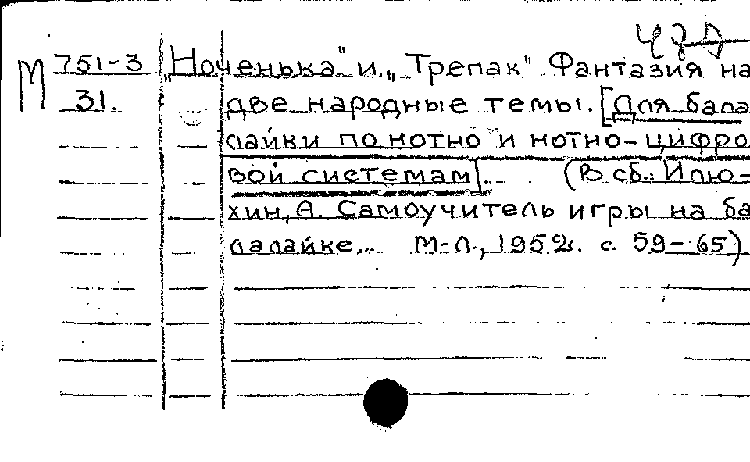 ЧЗД
М 751-3 „Ноченька" и „Трепак" Фантазия на
31. две народные темы. [Для бала
лайки по нотно и нотно-цифро
вой системам]... (В сб.: Илю-
хин, А. Самоучитель игры на ба
лалайке... М-Л., 1952. с. 59-65)